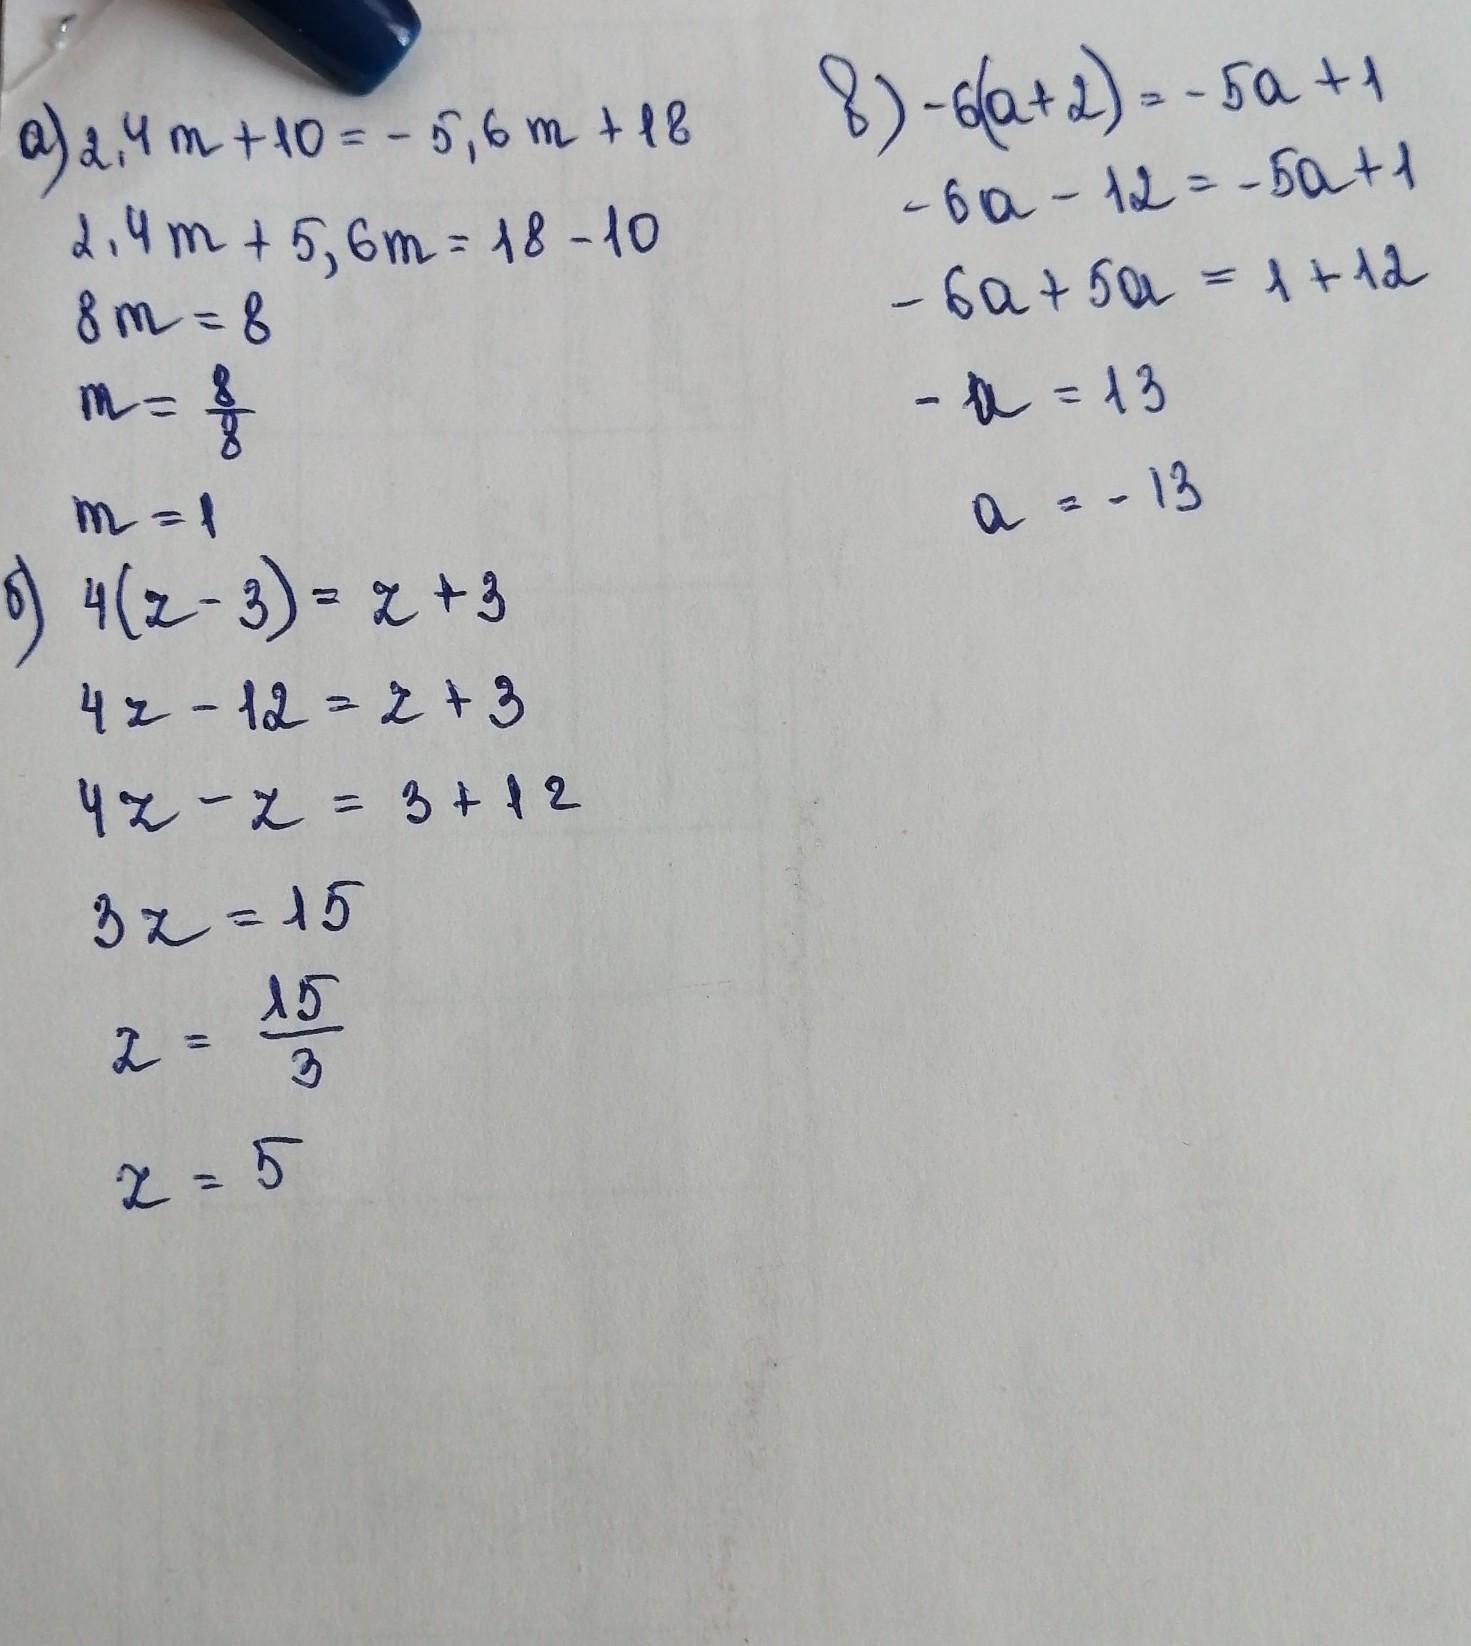 а) 2,4m + 10 = - 5,6m + 18
2,4m + 5,6m = 18 - 10
8m = 8
m = 8/8
m = 1
б) 4(z - 3) = z + 3
4z - 12 = z + 3
4z - z = 3 + 12
3z = 15
z = 15/3
z = 5
в) - 6(a + 2) = - 5a + 1
- 6a - 12 = - 5a + 1
- 6a + 5a = 1 + 12
- a = 13
a = - 13